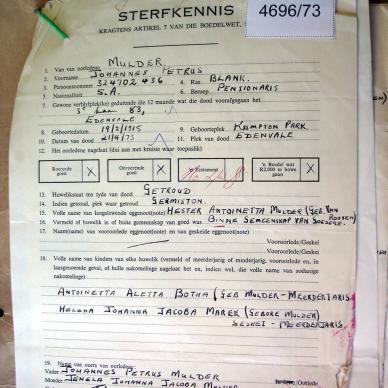 4696/73
STERFKENNIS
KRAGTENS ARTIKEL 7 VAN DIE BOEDELWET,
1. Van van oorledene MULDER
2. Voorname JOHANNES PETRUS
3. Persoonsnommer 324702 436 4. Ras BLANK.
5. Nasionaliteit S.A. 6. Beroep PENSIONARIS
7. Gewone verblyfplek(ke) gedurende die 12 maande wat die dood voorafgegaan het
3e Laan 83,
EDENVALE
8. Geboortedatum 19/2/1915 9. Geboorteplek KEMPTON PARK.
10. Datum van dood 21/4/73 11. Plek van dood EDENVALE
12. Het oorledene nagelaat (dui aan met kruisie waar toepaslik)
Roerende goed X Onroerende goed X 'n Testament 'n Boedel wat R2,000 te bowe gaan X
13. Huwelikstaat ten tyde van dood GETROUD
14. Indien getroud, plek waar getroud GERMISTON.
15. Volle name van langslewende eggenoot(note) HESTER ANTOINETTA MULDER (GEB. VAN ROOYEN)
16. Vermeld of huwelik in of buite gemeenskap van goed was BINNE GEMEENSKAP VAN GOEDERE.
17. Naam(name) van vooroorlede eggenoot(note) en vermeld
Vooroorlede/Geskei
Vooroorlede/Geskei
18. Volle name van kinders van elke huwelik (vermeld of meerderjarig of minderjarig, vooroorlede, en in
laasgenoemde geval, of hulle nakomelinge nagelaat het en, indien wel, die volle name van sodanige
nakomelinge)
ANTOINETTA ALETTA BOTHA (GEB MULDER - MEERDERJARIG
HELENA JOHANNA JACOBA MAREK (GEBORE MULDER)
GESKEI - MEERDERJARIG.
19. Name van ouers van oorledene
Vader JOHANNES PETRUS MULDER
Moeder JOHANNA JACOBA MULDER